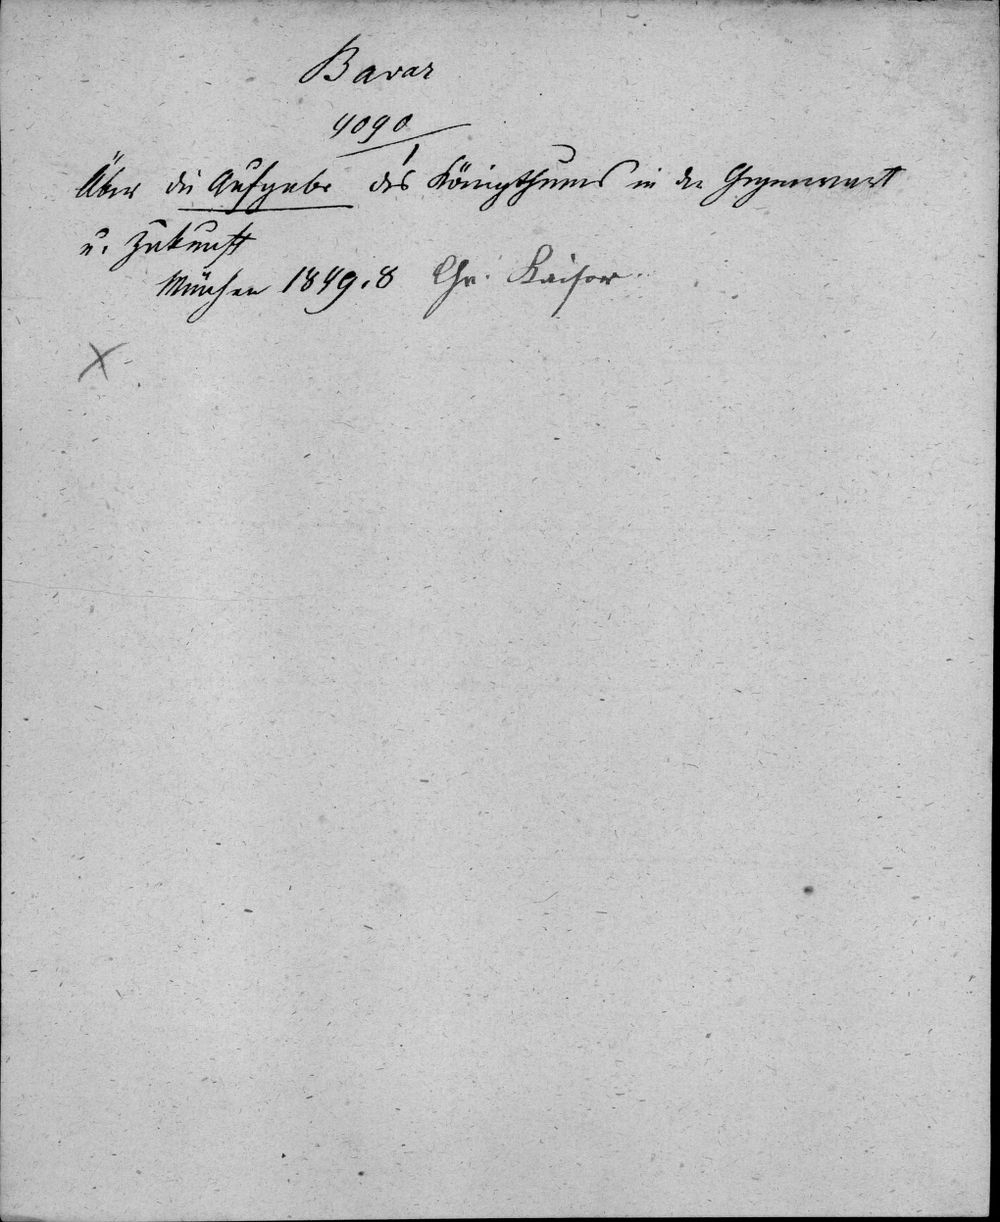 Bavar
4090
Über die Aufgabe des Königthums in der Gegenwart
u. Zukunft
München 1849. 8 Chr. Kaiser
X